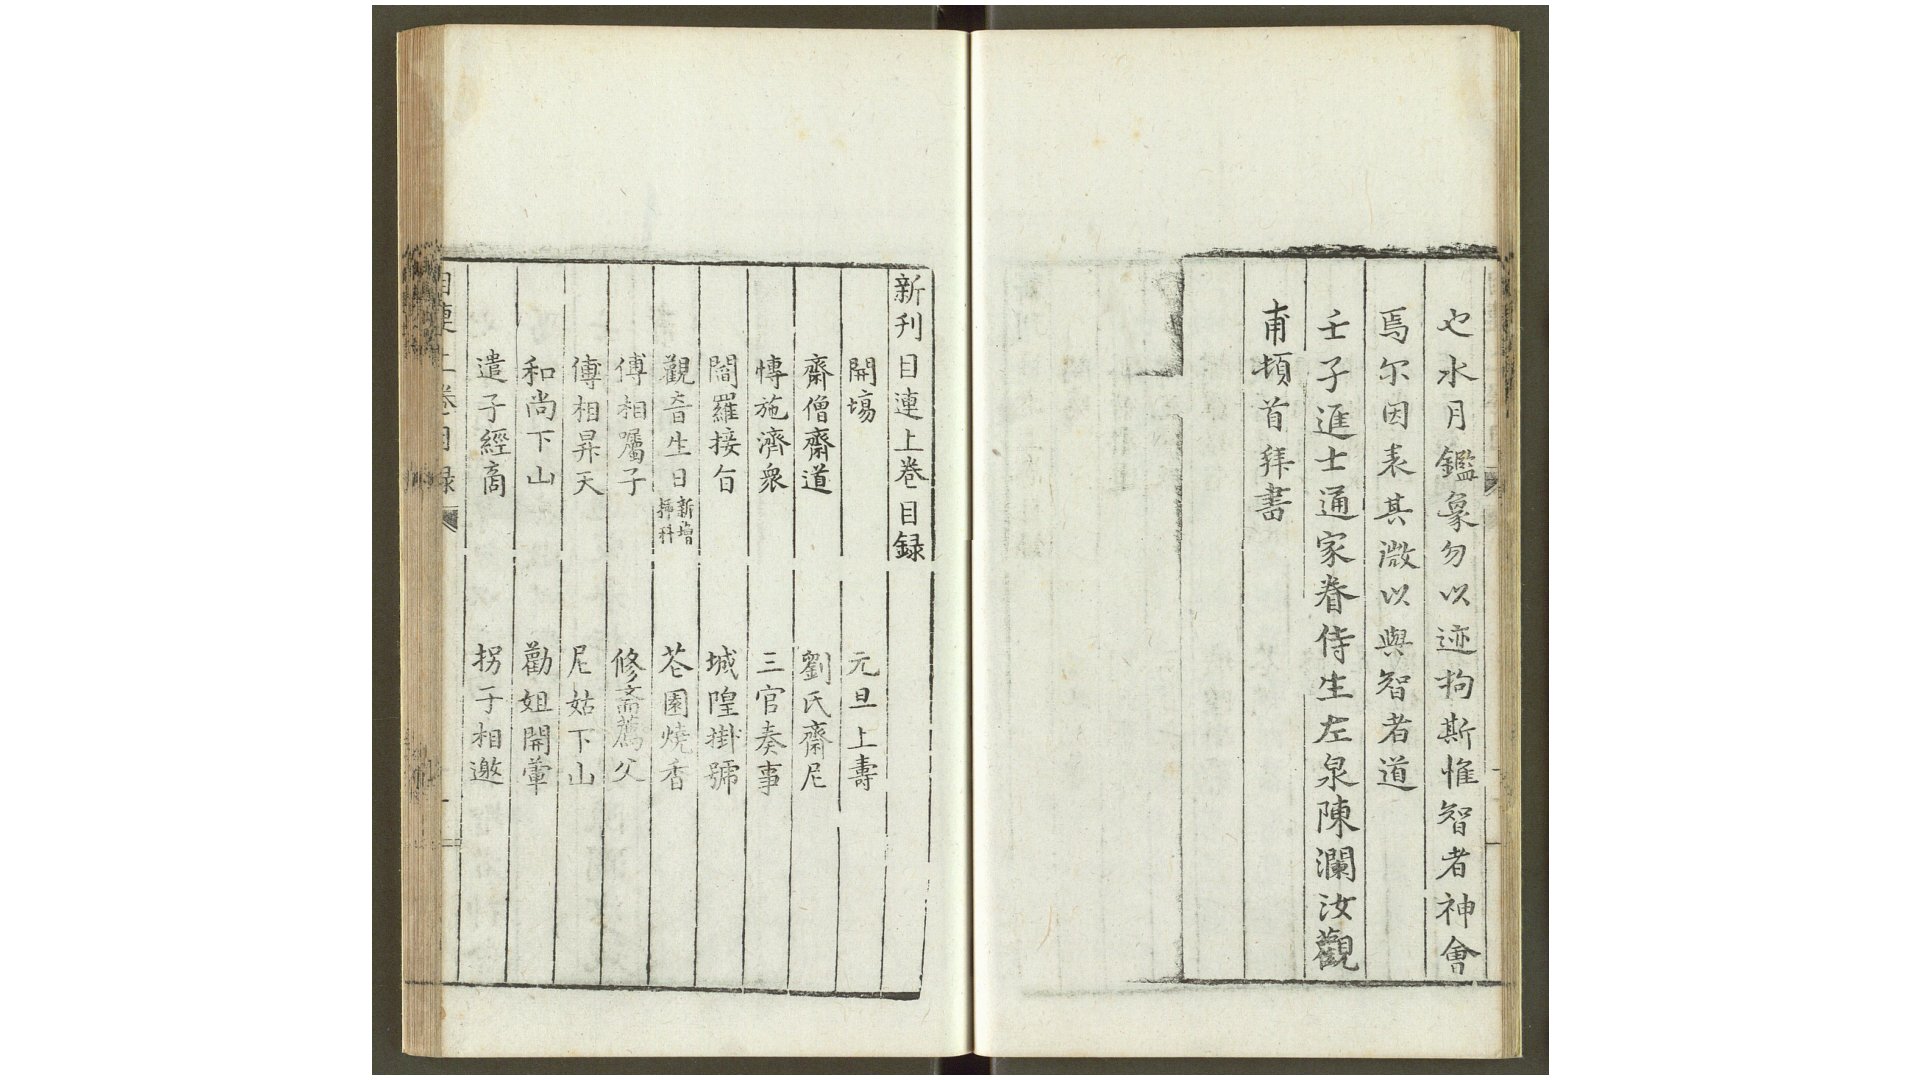 也水月鑑象勿以迹拘斯惟智者神會
焉尔因表其微以與智者道
壬子進士通家眷侍生左泉陳瀾汝觀
甫頓首拜書
新刊目連上卷目録
開塲
元旦上壽
齋僧齋道
劉氏齋尼
愽施濟衆
三官奏事
閻羅接旨
城隍掛號
觀音生日
新增
插科
花園燒香
傅相囑子
修斎薦父
傅相昇天
尼姑下山
和尚下山
勸姐開葷
遣子經商
拐子相邀
目連上卷目録